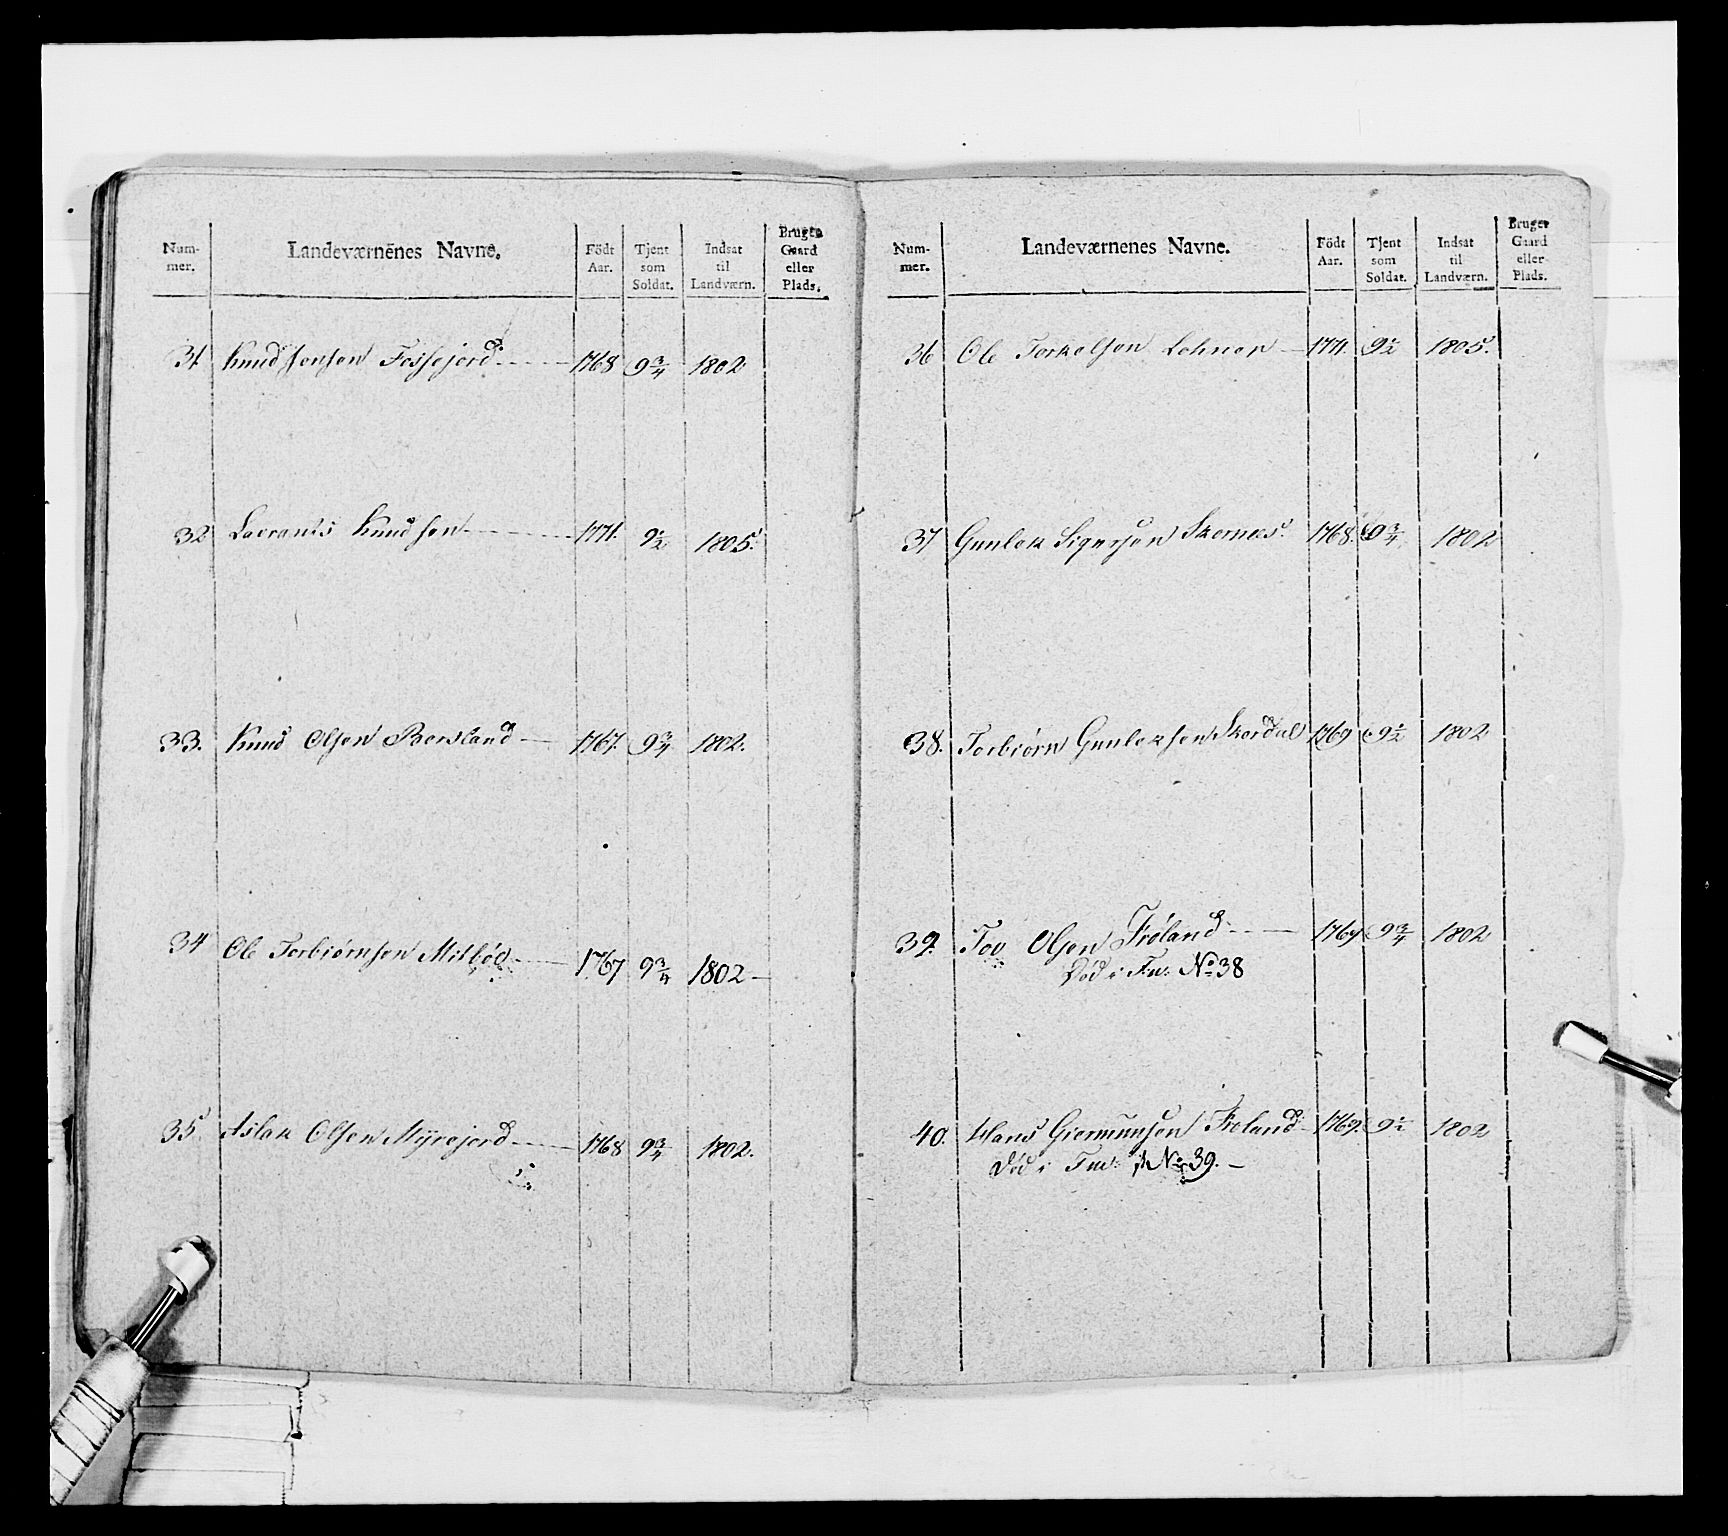 Num-
mer.
Landeværnenes Navne.
Födt
Aar.
Tjent
som
Soldat.
Indsat
til
Landværn.
Bruger
Gaard
eller
Plads.
31 Knud Jensen Fossejord 1768 9 3/4 1802
32 Lavrants Knudsen 1771. 9 1/2 1805.
33. Knud Olsen Bersland 1767. 9 3/4 1802.
34 Ole Torbiørnsen Mitbøe 1767 9 3/4 1802
35. Aslak Olsen Myrejord 1768 9 3/4 1802.
Num-
mer.
Landeværnenes Navne.
Födt
Aar.
Tjent
som
Soldat.
Indsat
til
Landværn.
Bruger
Gaard
eller
Plads.
36 Ole Torkelsen 1771. 9 1/2 1805.
37 Gunlek Sigursen 1768. 9 3/4 1802
38. Torbiørn Gunleksen Skordal 1769 9 1/2 1802
39. Tov Olsen Frøland 1767 9 3/4 1802
Død i No 38
40. Hans Giermunsen Froland 1769. 9 1/2 1802
Død i No 39.